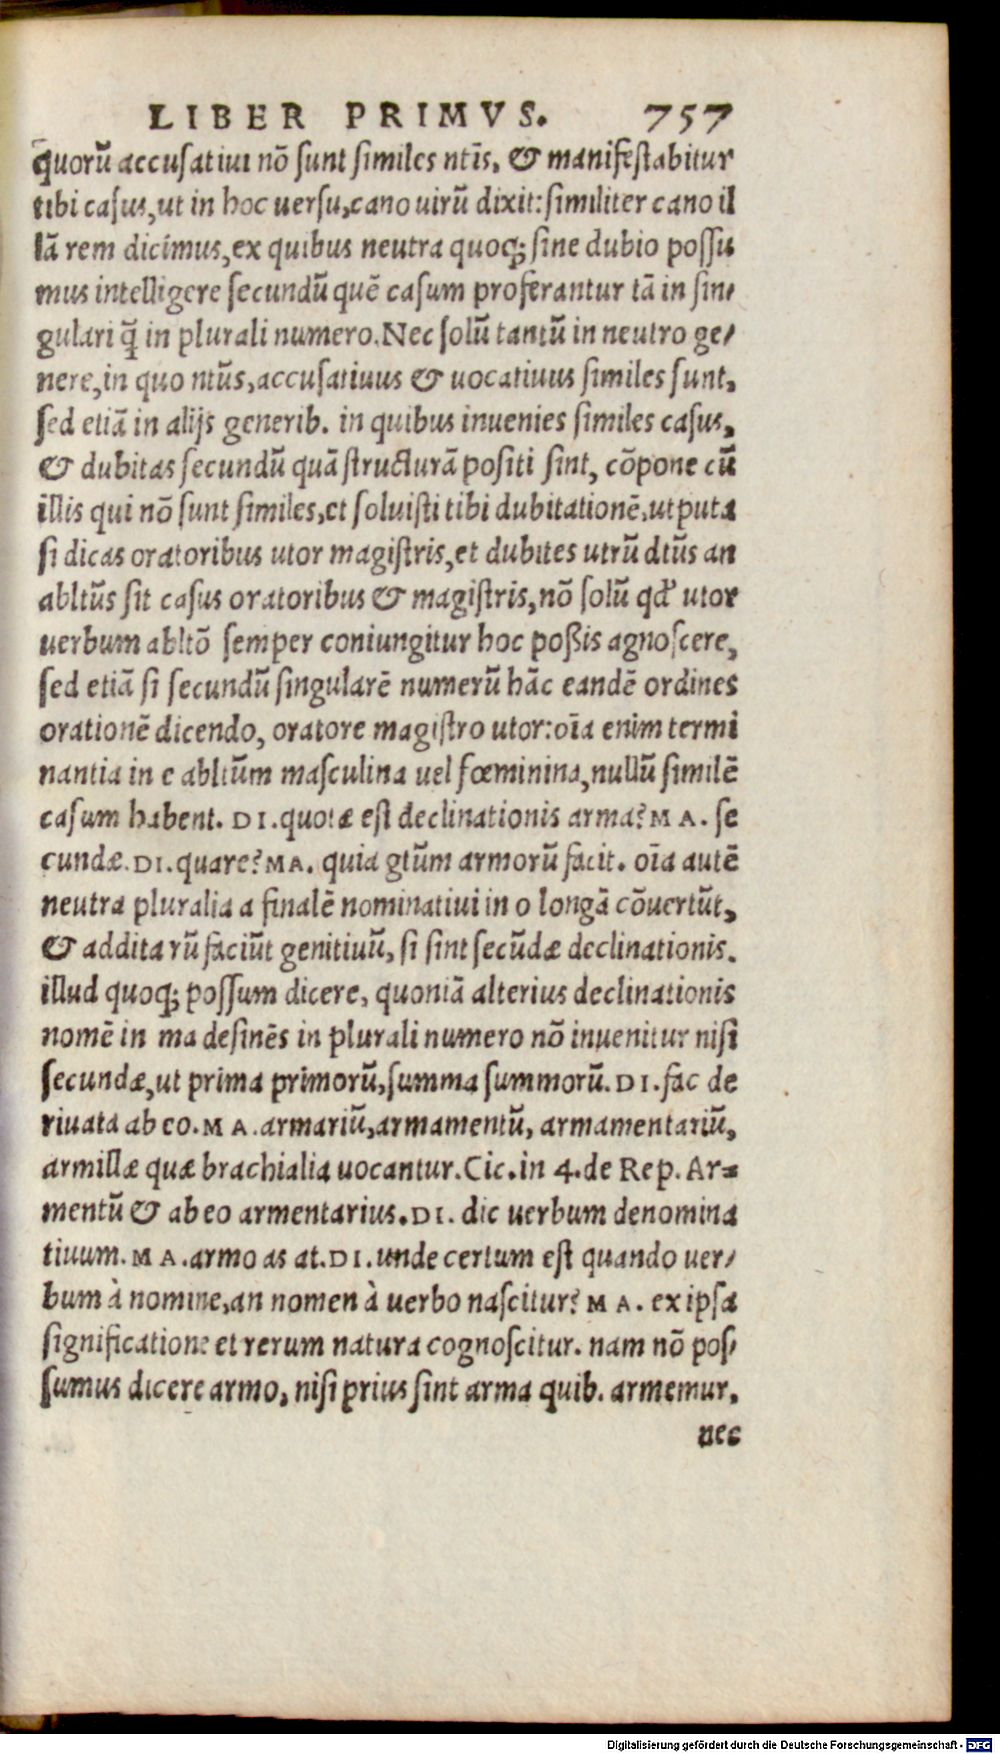 LIBER PRIMVS. 757
quorū accusatiui nō sunt similes ntīs, & manifestabitur
tibi casus, ut in hoc uersu, cano uirū dixit: similiter cano il
lā rem dicimus, ex quibus neutra quoq; sine dubio possu
mus intelligere secundū quē casum proferantur tā in sin-
gulari q̃ in plurali numero. Nec solū tantū in neutro ge-
nere, in quo ntūs, accusatiuus & uocatiuus similes sunt,
sed etiā in alijs generib. in quibus inuenies similes casus,
& dubitas secundū quā structurā positi sint, cōpone cū
illis qui nō sunt similes, et soluisti tibi dubitationē, ut puta
si dicas oratoribus utor magistris, et dubites utrū dtūs an
abltūs sit casus oratoribus & magistris, nō solū qd̓ utor
uerbum abltō semper coniungitur hoc poßis agnoscere,
sed etiā si secundū singularē numerū hāc eandē ordines
orationē dicendo, oratore magistro utor: oīa enim termi
nantia in e abltūm masculina uel fœminina, nullū similē
casum habent. DI. quotæ est declinationis arma? MA. se
cundæ. DI. quare? MA. quia gtūm armorū facit. oīa autē
neutra pluralia a finalē nominatiui in o longā cōuertūt,
& addita rū faciūt genitiuū, si sint secūdæ declinationis.
illud quoq; possum dicere, quoniā alterius declinationis
nomē in ma desinēs in plurali numero nō inuenitur nisi
secundæ, ut prima primorū, summa summorū. DI. fac de
riuata ab eo. MA. armariū, armamentū, armamentariū,
armillæ quæ brachialia uocantur. Cic. in 4. de Rep. Ar-
mentū & ab eo armentarius. DI. dic uerbum denomina
tiuum. MA. armo as at. DI. unde certum est quando uer-
bum à nomine, an nomen à uerbo nascitur? MA. ex ipsa
significatione et rerum natura cognoscitur. nam nō pos-
sumus dicere armo, nisi prius sint arma quib. armemur,
nec
Digitalisierung gefördert durch die Deutsche Forschungsgemeinschaft - DFG